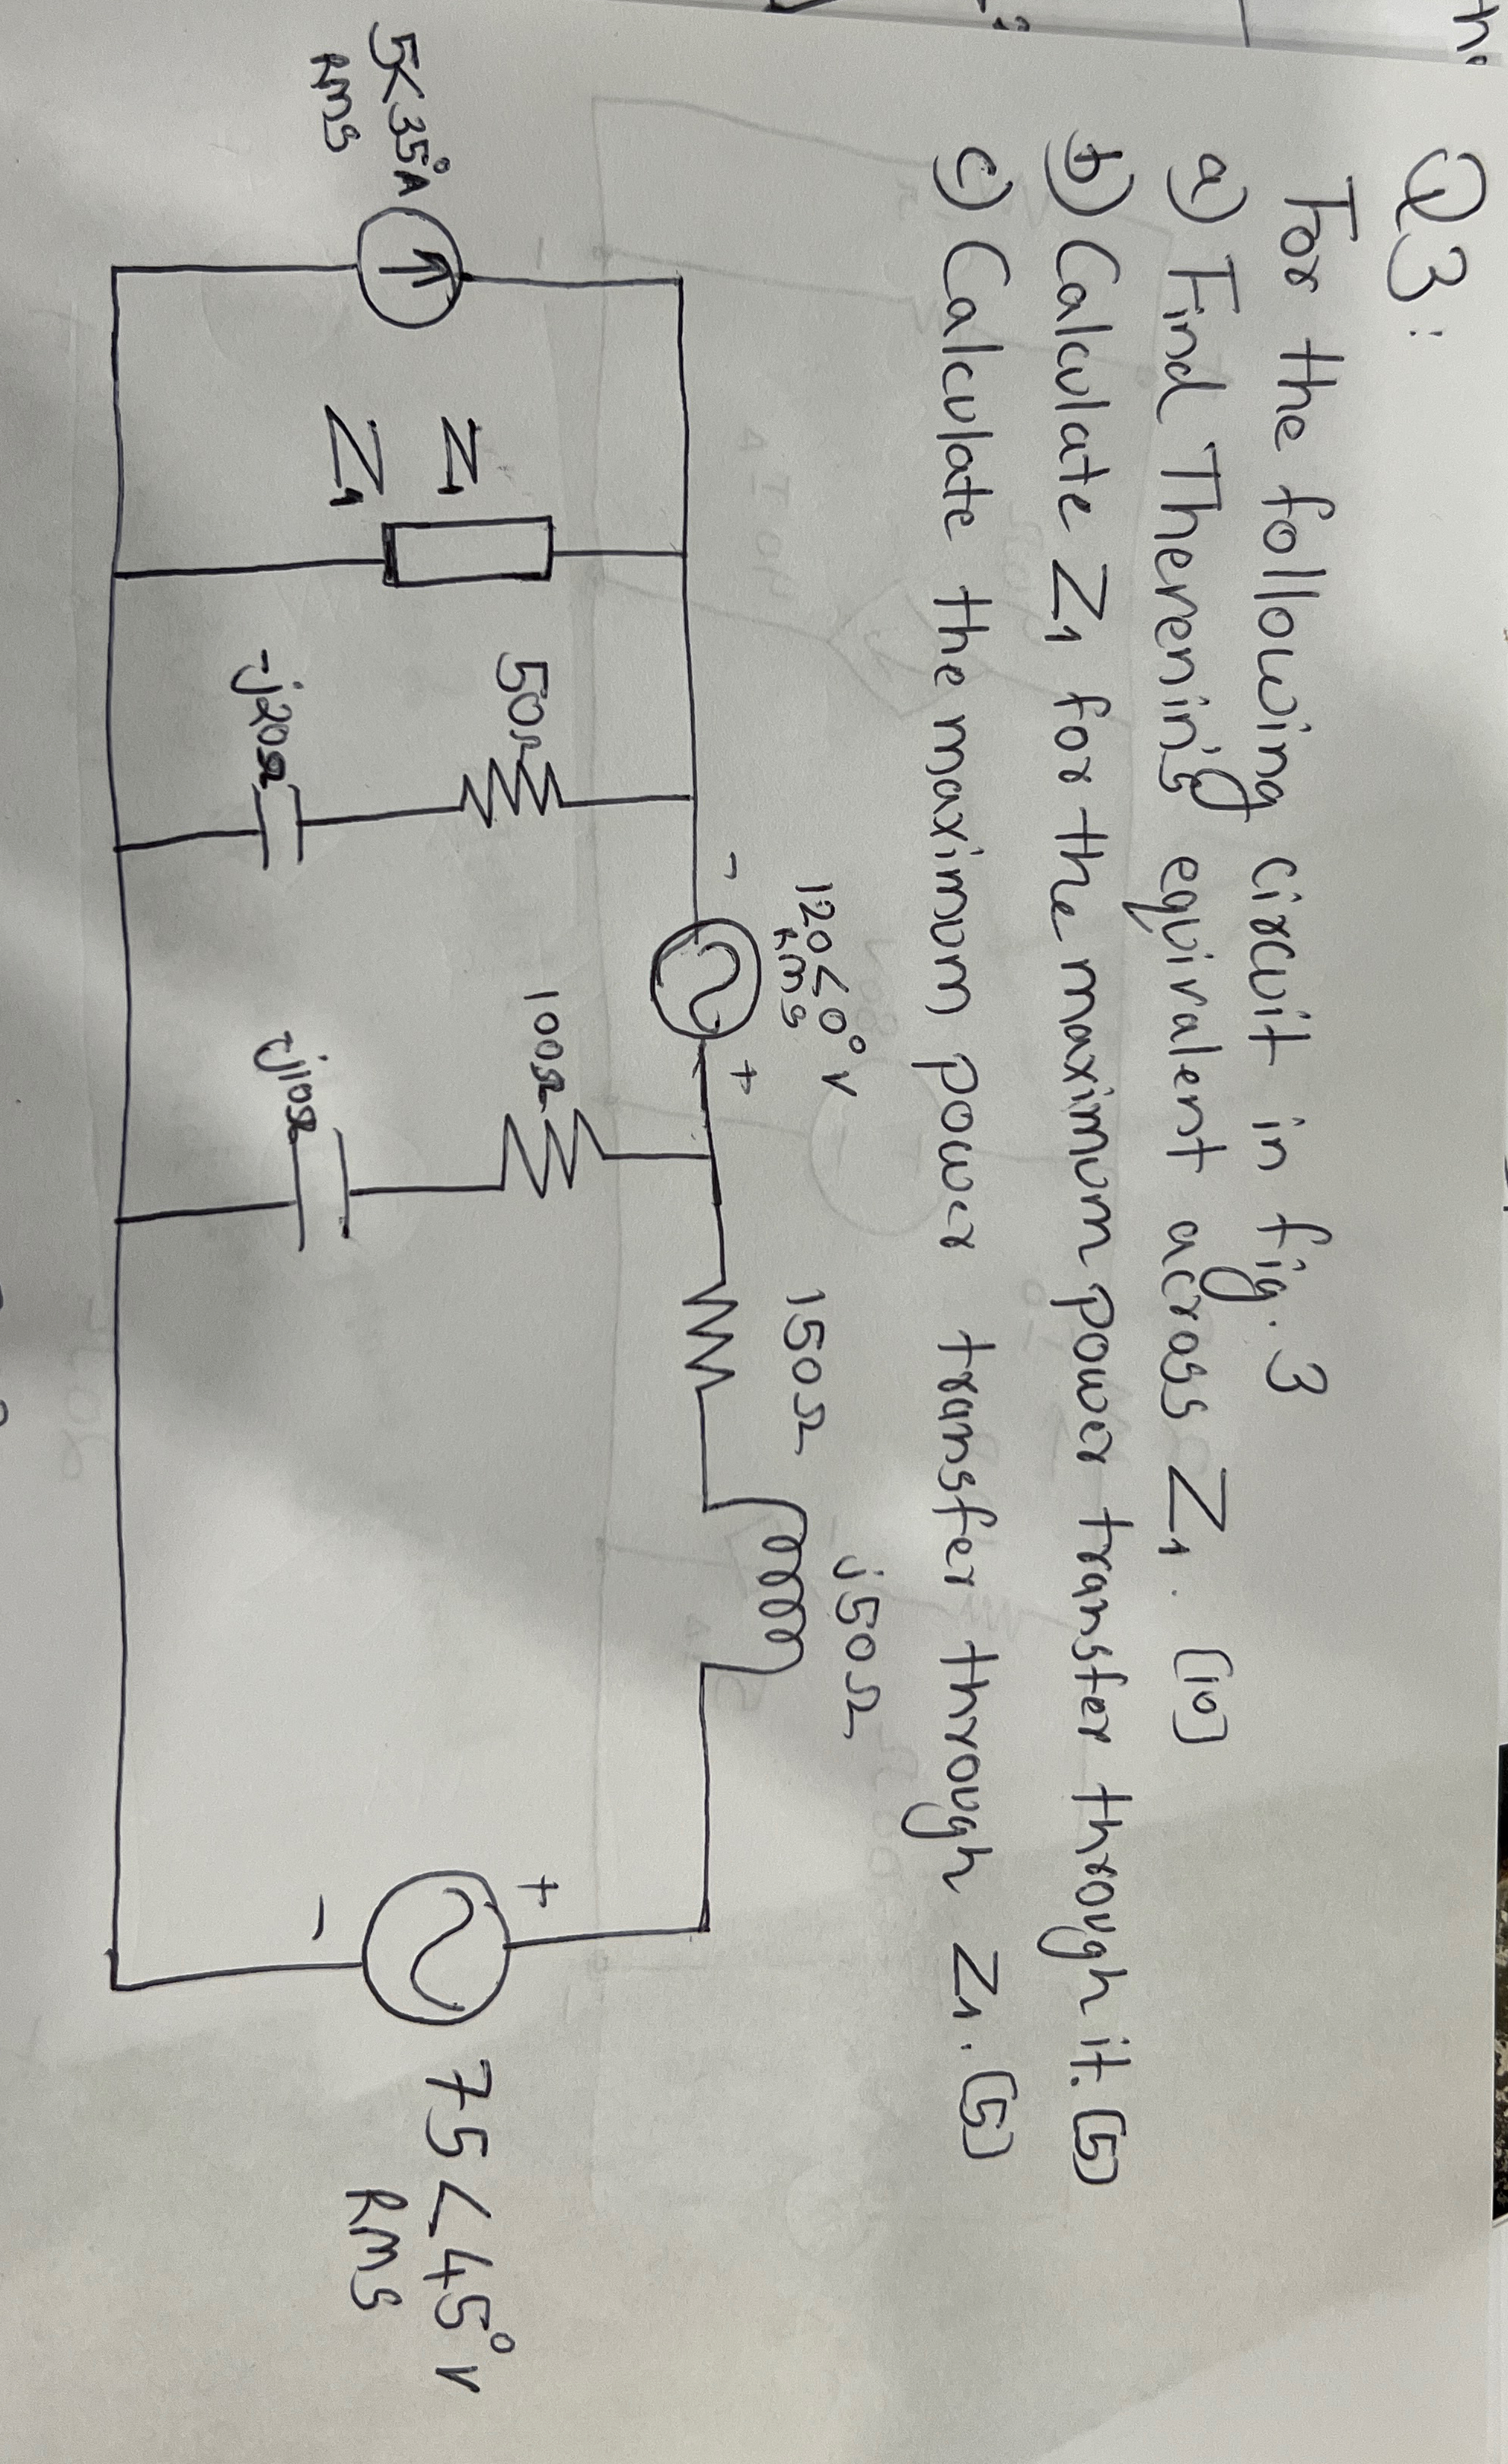 Q3:
For the following circuit in fig. 3
a) Find Therenin's equivalent across Z1. (10)
b) Calculate Z1 for the maximum power transfer through it. (5)
c) Calculate the maximum power transfer through Z1. (5)
120<0° V
RMS
- +
150Ω
j50Ω
5<35°A
RMS
Z1
Z1
50Ω
-j20Ω
100Ω
-j110Ω
+
-
75<45° V
RMS